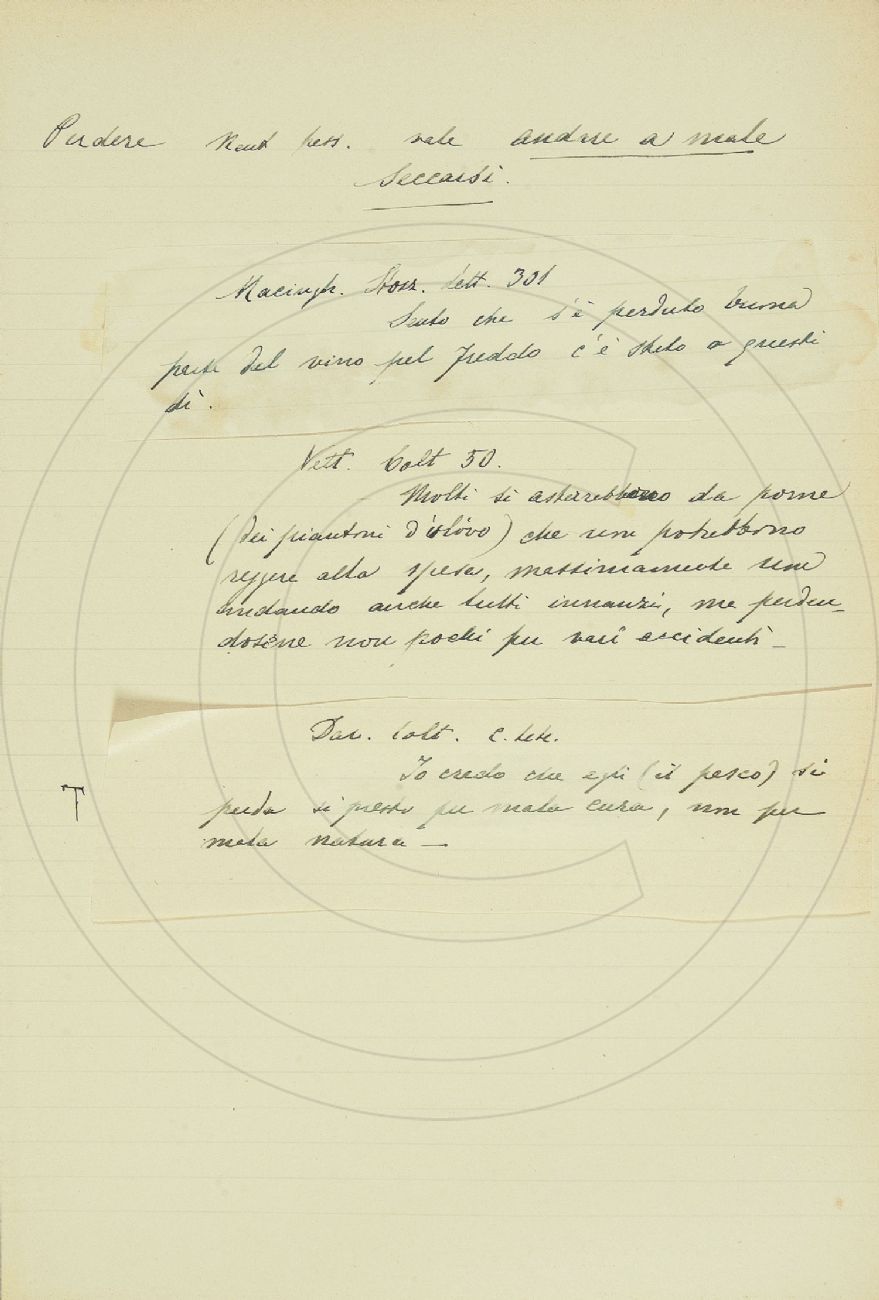 Perdere Neut pass. vale andare a male
seccarsi.
Macingh. Stroz. Lett. 301
Sento che s'è perduto buona
parte del vino pel freddo c'è stato a questi
dì.
Vett. Colt 50.
Molti si asterrebbono da porne
(dei piantoni d'ulivo) che non potrebbono
reggere alla spesa, massimamente non
andando anche tutti innanzi, ma perden-
dosene non pochi per vari accidenti -
Dav. Colt. C.
Io credo che egli (il pesco) si
T
perda si presto per mala cura, non per
mala natura -